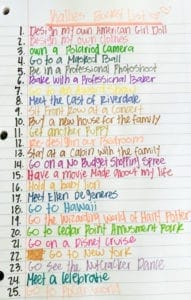 Bucket List
1. Design my own American Girl Doll
2. Design my own clothes
3. own a Polaroid Camera
4. Go to a Masked Ball
5. Be in a Professional Photoshoot
6. Bake with a Professional Baker
7. Go to an
8. Meet the Cast of Riverdale
9. Sit Front Row at a Concert
10. Buy a new house for the family
11. Get another Puppy
12. Re-design our Bedroom
13. Stay at a Cabin with the family
14. Go on a No Budget Shopping Spree
15. Have a movie Made about my life
16. Hold a baby lion
17. Meet Ellen Degeneres
18. Go to Hawaii
19. Go to the Wizarding World of Harry Potter
20. Go to Cedar Point Amusement Park
21. Go on a Disney Cruise
22. Go to New York
23. Go see the Nutcracker Dance
24. Meet a Celebrity
25. Go to